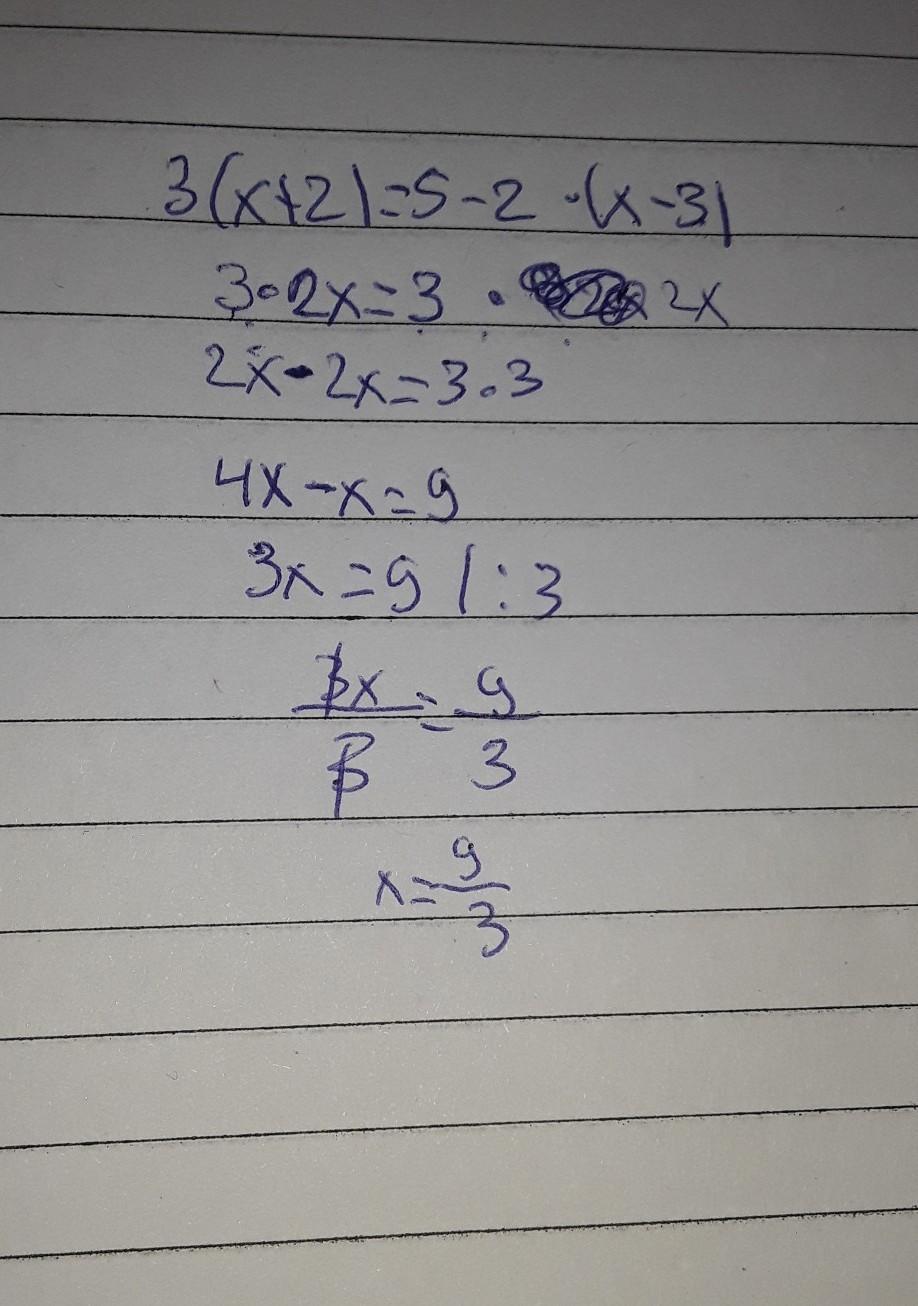 3(x+2)=5-2·(x-3)
3·2x=3·2x
2x-2x=3.3
4x-x=9
3x=9 |:3
3x/3=9/3
x=9/3